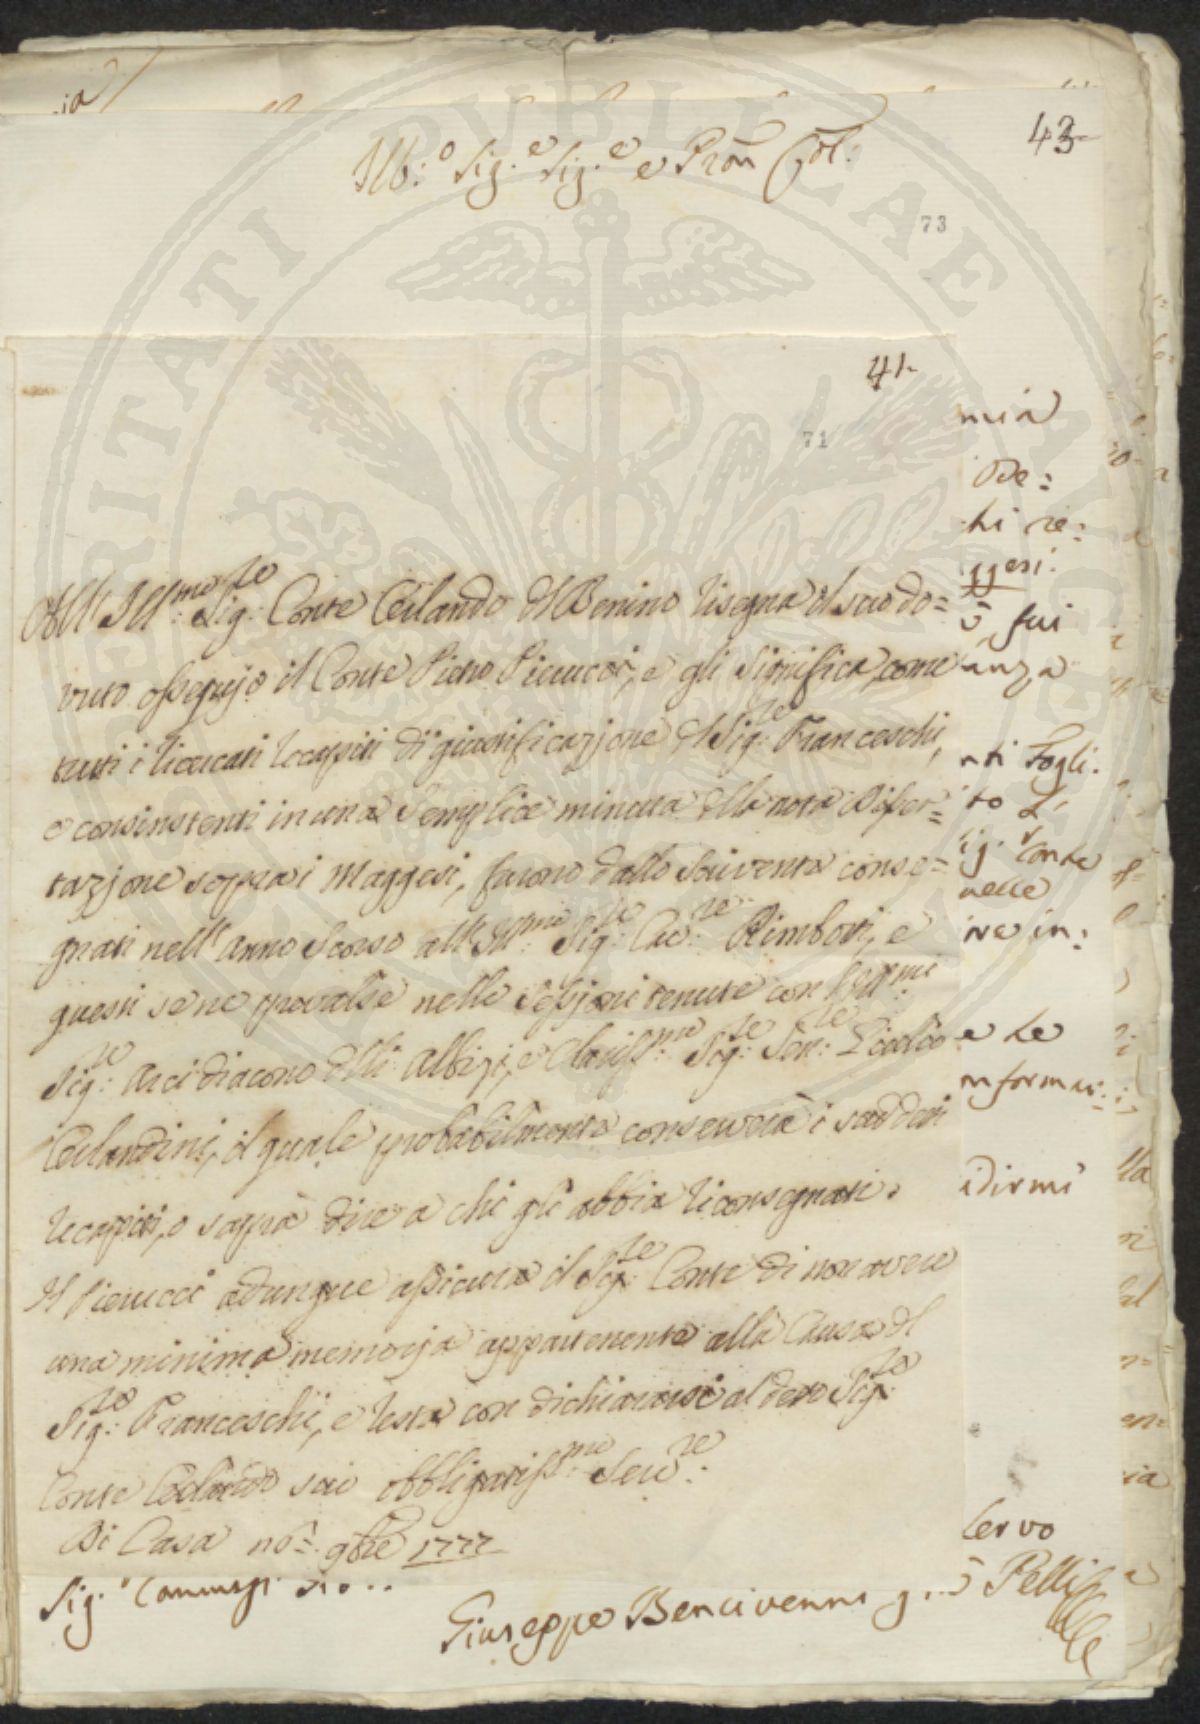 43
Ill:o Sig.e Sig.e e Pron Col:
73
41.
71
All' Ill:mo Sig:re Conte Orlando del Benino rasegna il suo do=
vuto ossequio il Conte Pietro Pierucci, e gli significa, come
tutti i ricercati recapiti di giustificazione del Sig:re Franceschi,
e consinstenti in una semplice minuta della nota Disser=
tazione soppra i Maggesi, furono dallo scrivente conse=
gnati nell' anno scorso all' Ill:mo Sig:re Cav:re Rimbotti, e
questi se ne prevalse nelle sessioni tenute con gl' Ill:mi
Sig:re Arcidiacono delli Albizi, e Clariss:mo Sig:re Sen:re
Orlandini, il quale probabilmente conserverà i suddetti
recapiti, o saprà dire a chi gli abbia riconsegnati.
Il Pierucci adunque assicura il Sig:re Conte di non avere
una minima memoria appartenente alla Causa del
Sig:re Franceschi, e resta con dichiararsi al detto Sig:re
Conte Orlando suo obbligatiss:mo Serv:re
Di Casa no: 9bre 1777
mia
De=
hi re=
ggesi.
fui
anza
nti Fogli.
to L'
ig.r Conte
nelle
ire in:
e Le
nformi:
idirmi
Servo
Sig.r
Giuseppe Bencivenni già Pelli